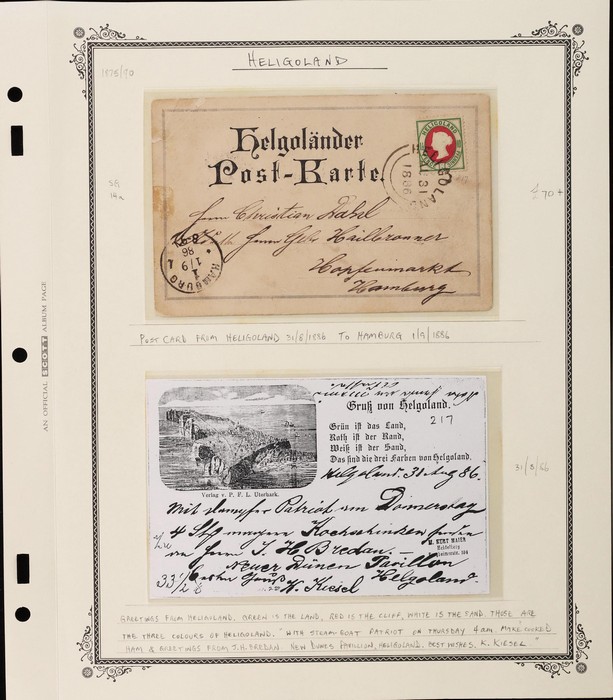 HELIGOLAND
1875/90
HELIGOLAND
Helgoländer
Post-Karte.
HELIGOLAND
31
1886
SG
14a
£70+
Herrn Christian Dahl
Herrn Gebr Hailbronner
Hopfenmarkt
Hamburg
HAMBURG
1
1/9
86
POST CARD FROM HELIGOLAND 31/8/1886 TO HAMBURG 1/9/1886
AN OFFICIAL SCOTT ALBUM PAGE
Gruß von Helgoland.
217
Grün ist das Land,
Roth ist der Rand,
Weiß ist der Sand,
Das sind die drei Farben von Helgoland.
Verlag v. P. F. L. Uterhark.
Helgoland. 31 Aug 86.
31/8/86
Mit dampfer Patriot am Donnerstag
4 Stg magere Kochschinken
von Herrn J. H Bredau. —
Neuer Dünen Pavillon
Helgoland.
M. KURT MAIER
Heidelberg
33 1/2
K. Kiesel
GREETINGS FROM HELIGOLAND. GREEN IS THE LAND, RED IS THE CLIFF, WHITE IS THE SAND. THOSE ARE
THE THREE COLOURS OF HELIGOLAND. "WITH STEAM-BOAT PATRIOT ON THURSDAY 4am. MAKE COOKED
HAM & GREETINGS FROM J.H. BREDAN NEW DUNES PAVILLION, HELIGOLAND. BEST WISHES, K. KIESEL